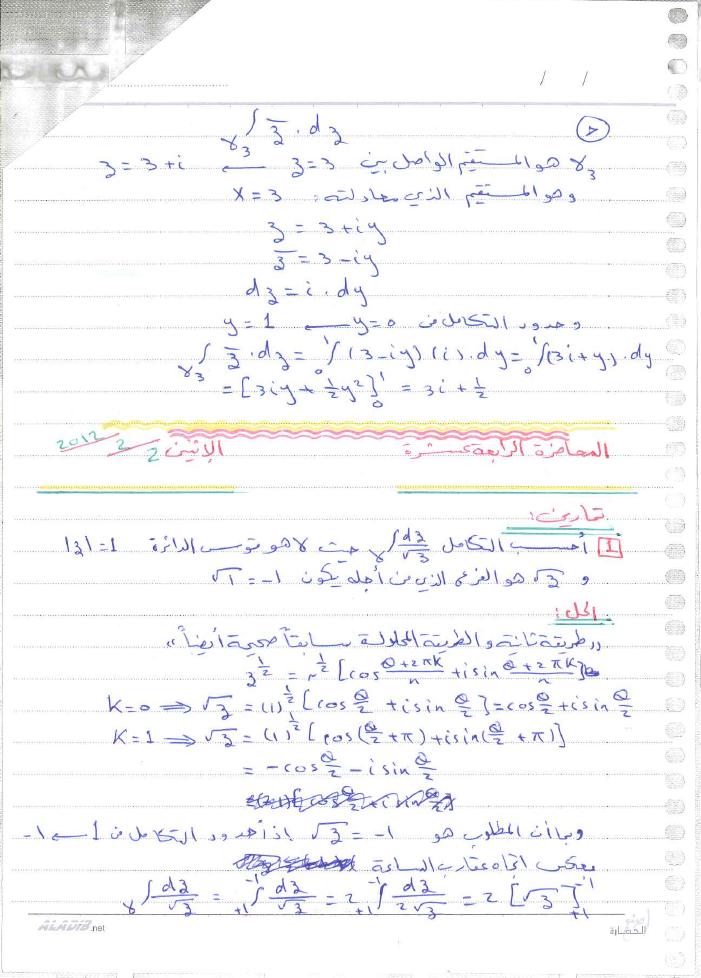 / /
② ∫_γ₃ z̄ . dz
γ₃ هو المستقيم الواصل بين z = 3 ← z = 3+i
وهو المستقيم الذي معادلته: x = 3
z = 3 + iy
z̄ = 3 - iy
dz = i . dy
وحدود التكامل من y = 0 ← y = 1
∫_γ₃ z̄ . dz = ₀∫¹ (3 - iy) (i) . dy = ₀∫¹ (3i + y) . dy
= [3iy + ½y²]₀¹ = 3i + ½
المحاضرة الرابعة عشرة الإثنين 2/2/2012
تمارين:
1 أحسب التكامل ∫_γ dz/√z حيث γ هو قوس الدائرة |z| = 1
و √z هو الفرع الذي من أجله يكون √1 = -1
الحل:
"طريقة ثانية والطريقة المحلولة سابقاً صحيحة أيضاً"
z^½ = r^½ [cos (θ+2πk)/n + i sin (θ+2πk)/n]
K=0 ⟹ √z = (1)^½ [cos θ/2 + i sin θ/2] = cos θ/2 + i sin θ/2
K=1 ⟹ √z = (1)^½ [cos(θ/2 + π) + i sin(θ/2 + π)]
= -cos θ/2 - i sin θ/2
وبما أن المطلوب هو √z = -1 إذاً حدود التكامل من 1 ← -1
بعكس اتجاه عقارب الساعة
∫_γ dz/√z = ₊₁∫⁻¹ dz/√z = 2 ₊₁∫⁻¹ dz/2√z = 2 [√z]₊₁⁻¹
ALADIB.net
الحضارة